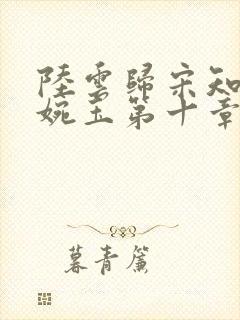 陸雲歸宋知
婉玉第十章
暮青簾